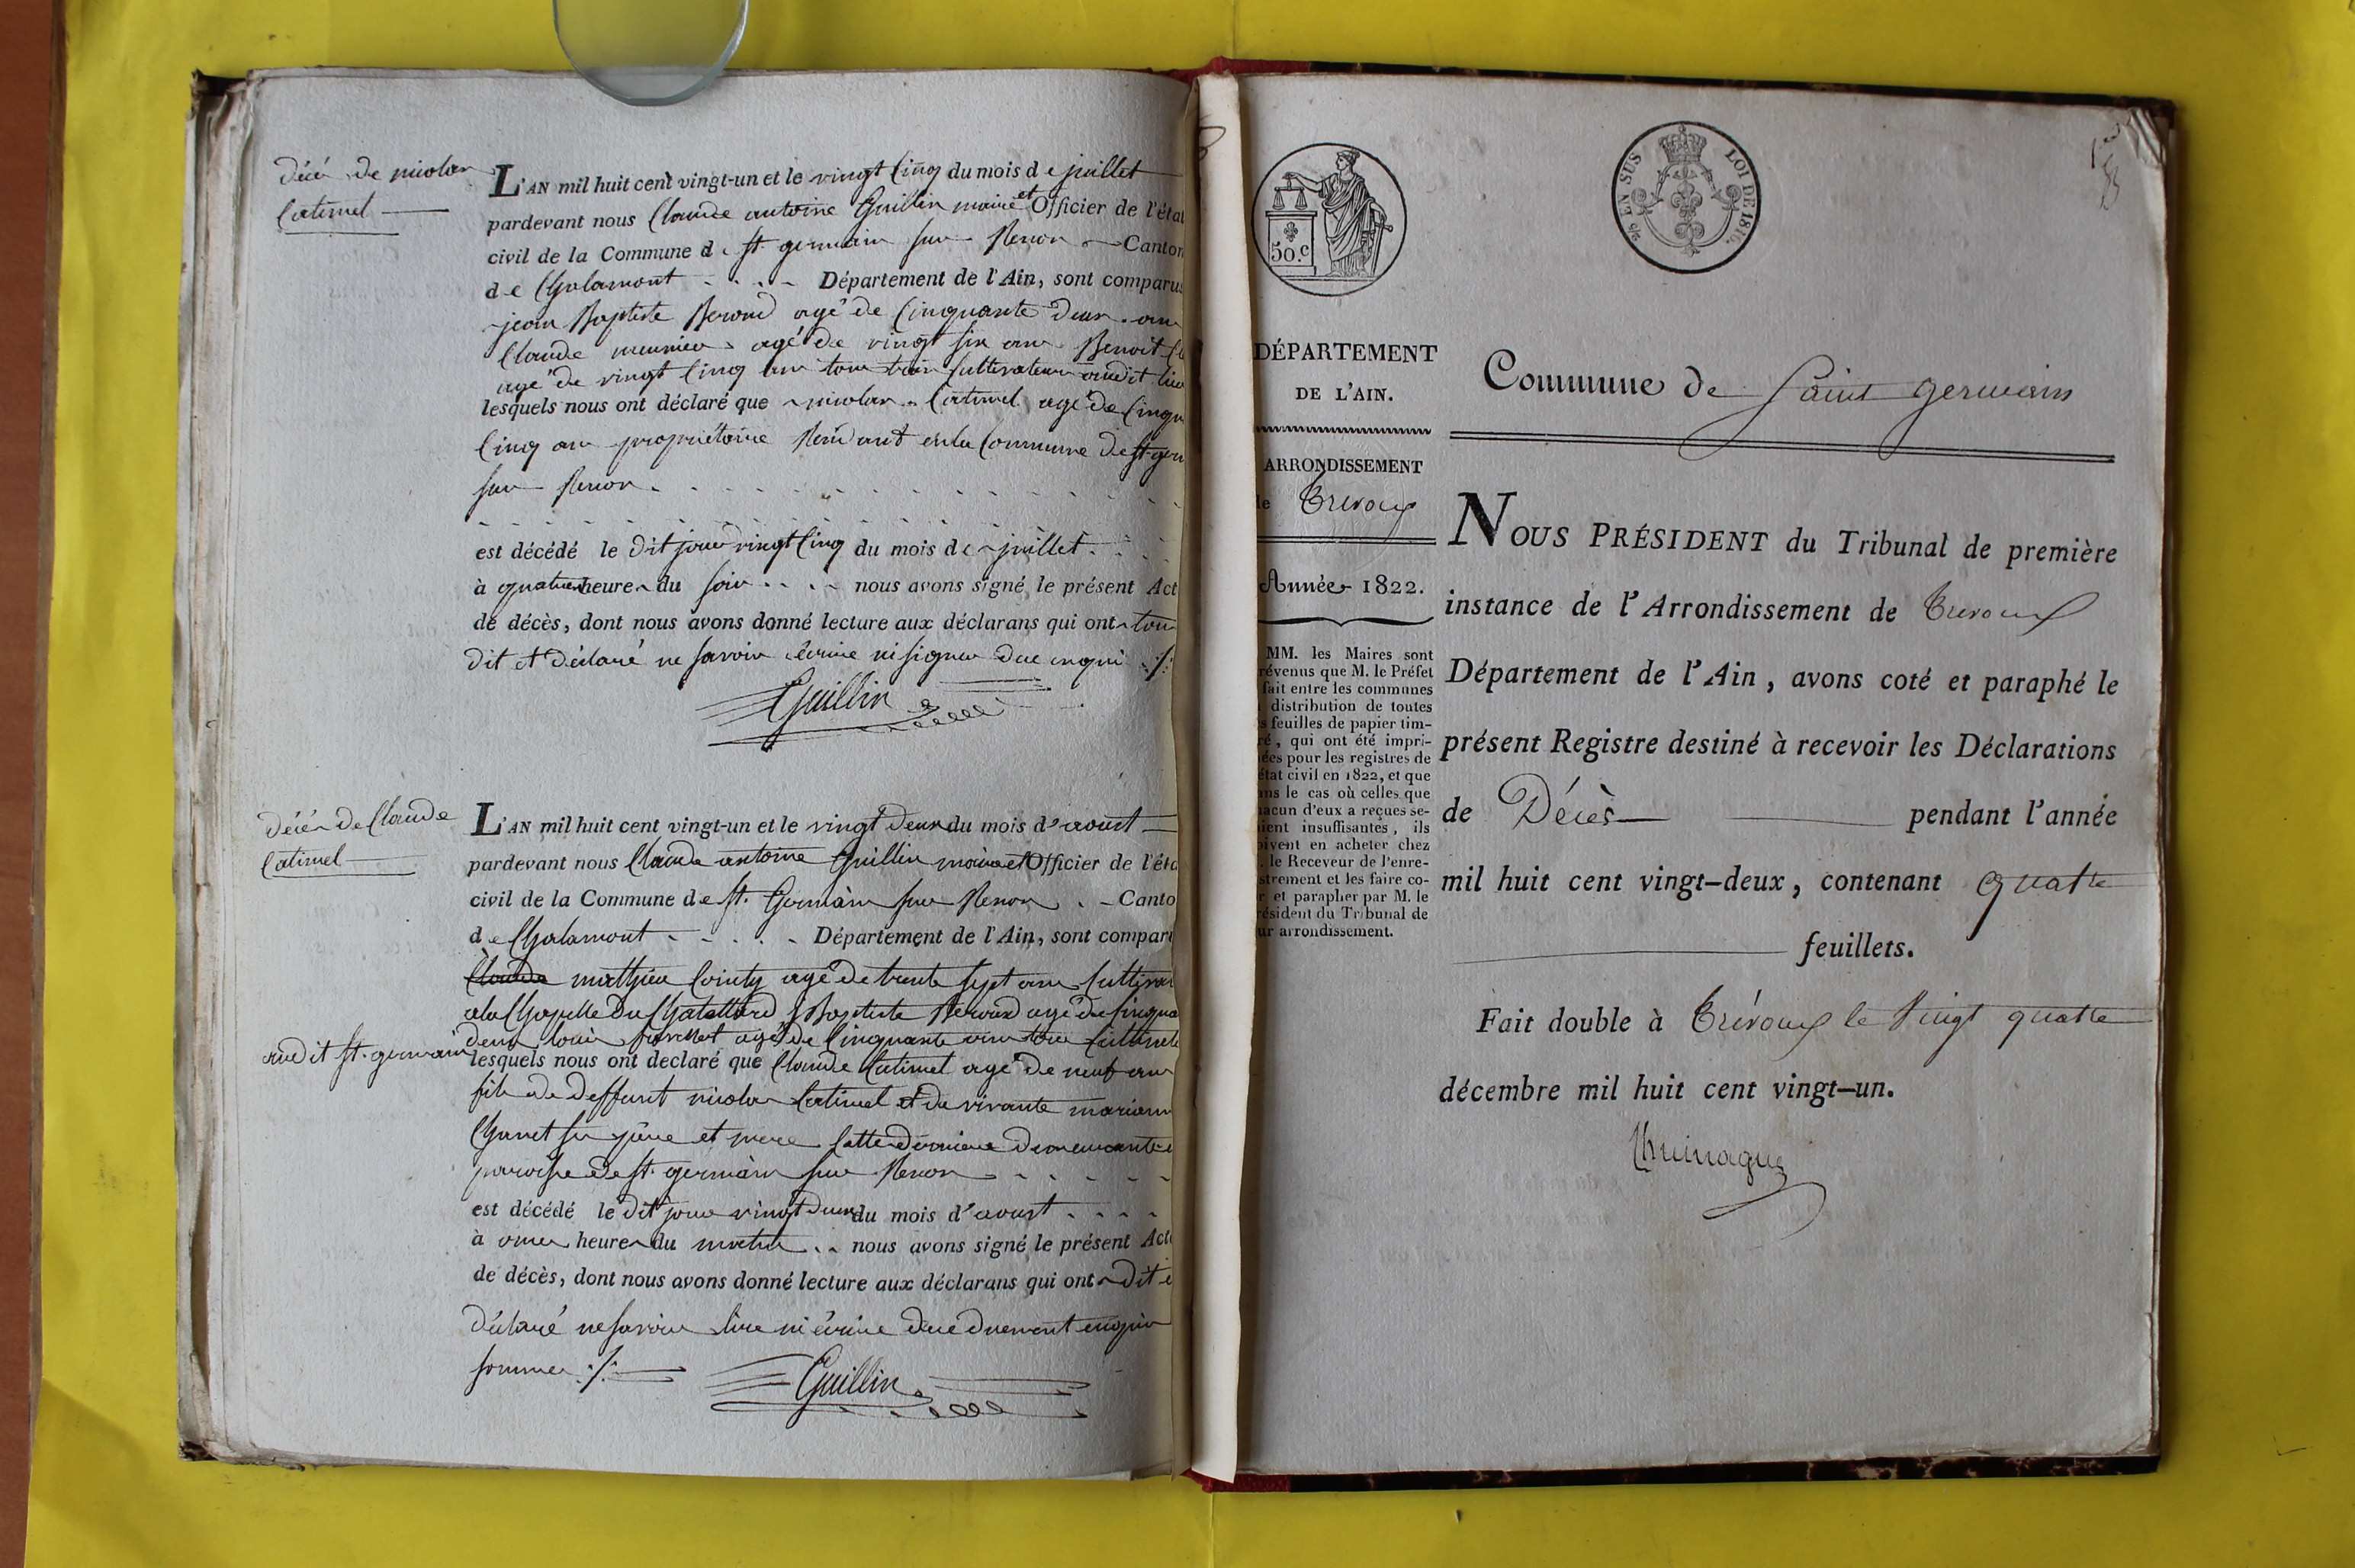 décé de nicolas
Catimel
L'AN mil huit cent vingt-un et le vingt cinq du mois de juillet
pardevant nous Claude antoine Guillin maire et Officier de l'éta
civil de la Commune de st germain sur Renon Canton
de Chalamont Département de l'Ain, sont comparus
jean Baptiste Beroud agé de Cinquante deux ans
Claude meunier agé de vingt six ans Benoit
agé de vingt Cinq ans tous trois Cultivateurs audit lieu
lesquels nous ont déclaré que nicolas Catimel agé de Cinqu
Cinq ans propriétaire Residant en la Commune de st ger
sur Renon
est décédé le dit jour vingt Cinq du mois de juillet
à quatre heures du soir nous avons signé le présent Act
de décès, dont nous avons donné lecture aux déclarans qui ont tous
dit et déclaré ne savoir écrire ni signer de ce enquis ./.
Guillin
décés de Claude
Catimel
L'AN mil huit cent vingt-un et le vingt deux du mois d'aoust
pardevant nous Claude antoine Guillin maire et Officier de l'éta
civil de la Commune de st. Germain sur Renon Canto
de Chalamont Département de l'Ain, sont compar
Claude mathieu Cointy agé de trente sept ans Cultivat
a la Chapelle du Chatellard J Baptiste Beroud agé de Cinqua
deux louis agé de Cinquante ans tous Cultivate
audit st. germain
lesquels nous ont declaré que Claude Catimel agé de neuf ans
fils de deffunt nicolas Catimel et de vivante mariann
Chanet ses père et mere cette derniere demeurante
paroisse de st. germain sur Renon
est décédé le dit jour vingt deux du mois d'aoust
à onze heures du matin nous avons signé le présent Acte
de décès, dont nous avons donné lecture aux déclarans qui ont dit e
déclaré ne savoir lire ni écrire de ce duement enquis
sommes ./.
Guillin
50.c
EN SUS LOI DE 1816.
DÉPARTEMENT
DE L'AIN.
ARRONDISSEMENT
de Trévoux
Année 1822.
MM. les Maires sont
révenus que M. le Préfet
fait entre les communes
distribution de toutes
s feuilles de papier tim-
ré, qui ont été impri-
ées pour les registres de
état civil en 1822, et que
ns le cas où celles que
acun d'eux a reçues se-
ient insuffisantes, ils
oivent en acheter chez
. le Receveur de l'enre-
strement et les faire co-
r et parapher par M. le
résident du Tribunal de
ur arrondissement.
Commune de Saint germain
NOUS PRÉSIDENT du Tribunal de première
instance de l'Arrondissement de Trévoux
Département de l'Ain, avons coté et paraphé le
présent Registre destiné à recevoir les Déclarations
de Décès pendant l'année
mil huit cent vingt-deux, contenant quatre
feuillets.
Fait double à Trévoux le Vingt quatre
décembre mil huit cent vingt-un.